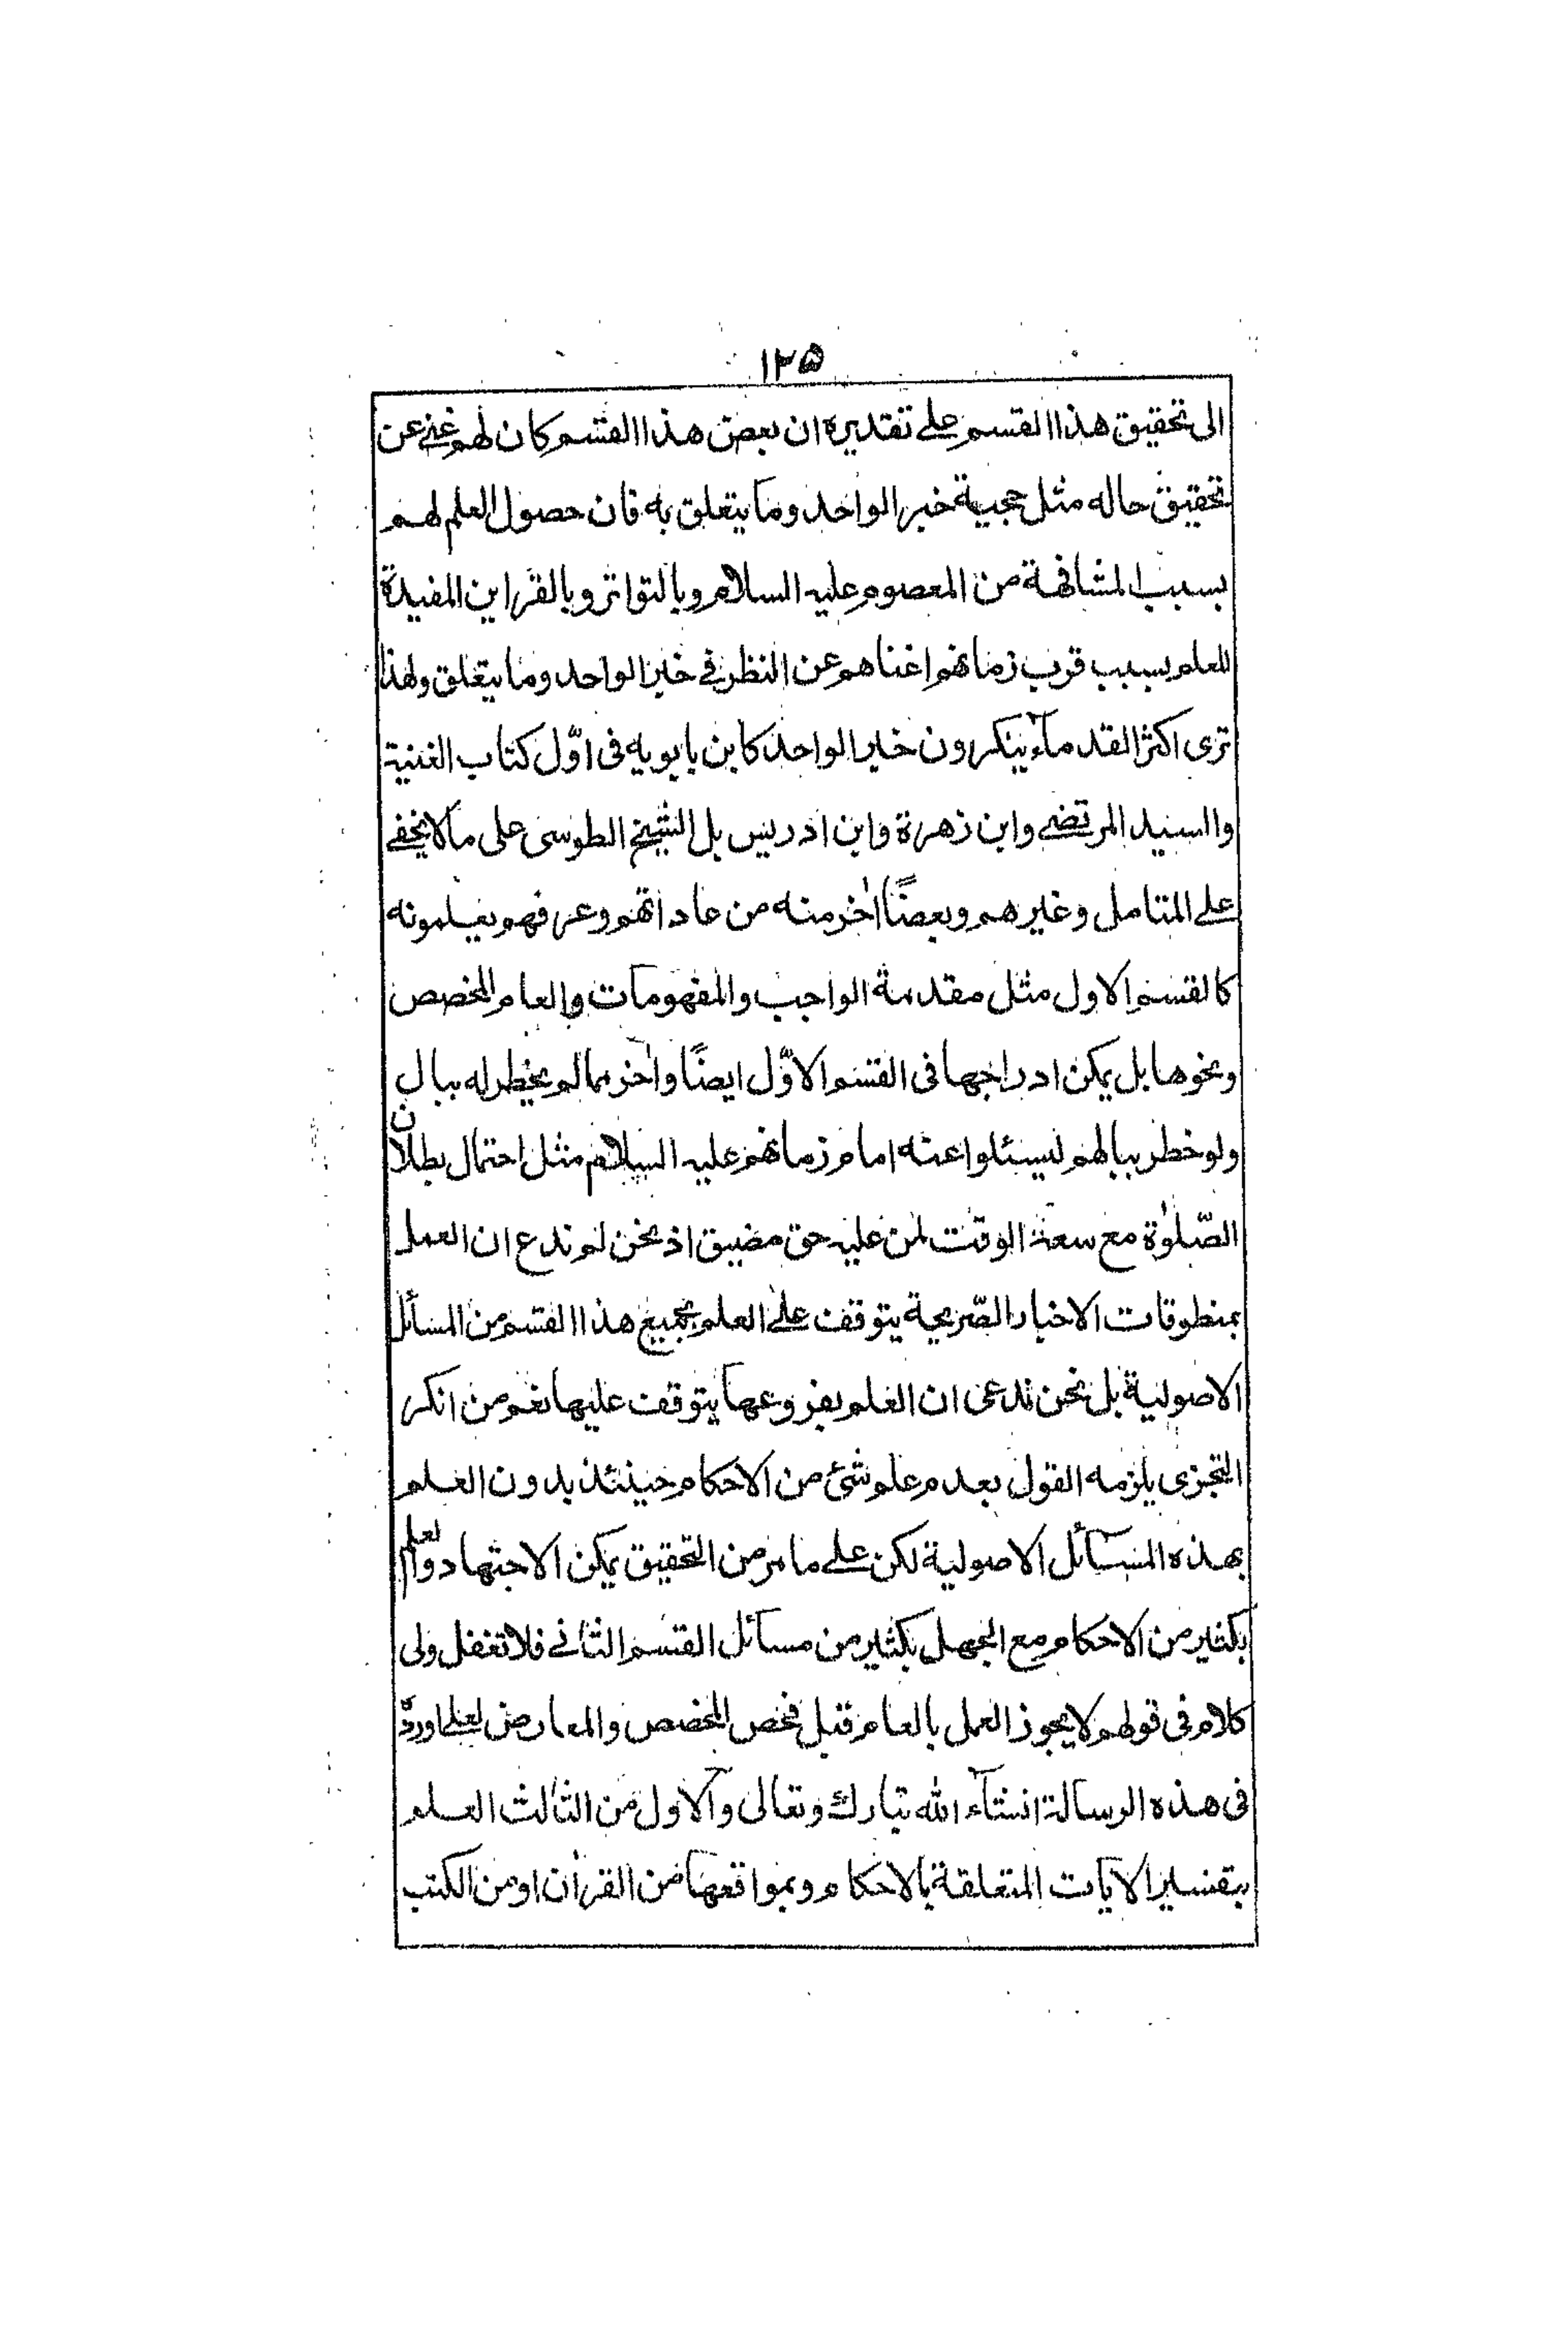 ١٢۵
الى تحقيق هذا القسم على تقديره ان بعض هذا القسم كان لهم غنى عن
تحقيق حاله مثل حجية خبر الواحد وما يتعلق به فان حصول العلم لهم
بسبب المشافهة من المعصوم عليه السلام وبالتواتر وبالقراين المفيدة
للعلم بسبب قرب زمانهم اغناهم عن النظر في خبر الواحد وما يتعلق ولهذا
ترى اكثر القدمآء ينكرون خبر الواحد كابن بابويه فى اوّل كتاب الغنية
والسيد المرتضى وابن زهرة وابن ادريس بل الشيخ الطوسى على ما لا يخفى
على المتامل وغيرهم وبعضًا اخر منه من عاداتهم وعرفهم يعلمونه
كالقسم الاول مثل مقدمة الواجب والمفهومات والعام المخصص
ونحوها بل يمكن ادراجها فى القسم الاوّل ايضًا واخر مما لم يخطر له ببال
ولو خطر ببالهم ليسئلوا عنه امام زمانهم عليه السلام مثل احتمال بطلان
الصّلوٰة مع سعة الوقت لمن عليه حق مضيق اذ نحن لم ندع ان العمل
بمنطوقات الاخبار الصّريحة يتوقف على العلم بجميع هذا القسم من المسائل
الاصولية بل نحن ندعى ان العلم بفروعها يتوقف عليها نعم من انكر
التجزى يلزمه القول بعدم علم شئ من الاحكام حينئذ بدون العلم
بهذه المسائل الاصولية لكن على ما مر من التحقيق يمكن الاجتهاد والعلم
بكثير من الاحكام مع الجهل بكثير من مسائل القسم الثانى فلا تغفل ولى
كلام فى قولهم لا يجوز العمل بالعام قبل فحص المخصص والمعارض لعلى اورده
فى هذه الرسالة انشآء الله تبارك وتعالى والاول من الثالث العلم
بتفسير الايات المتعلقة بالاحكام وبمواقعها من القران او من الكتب